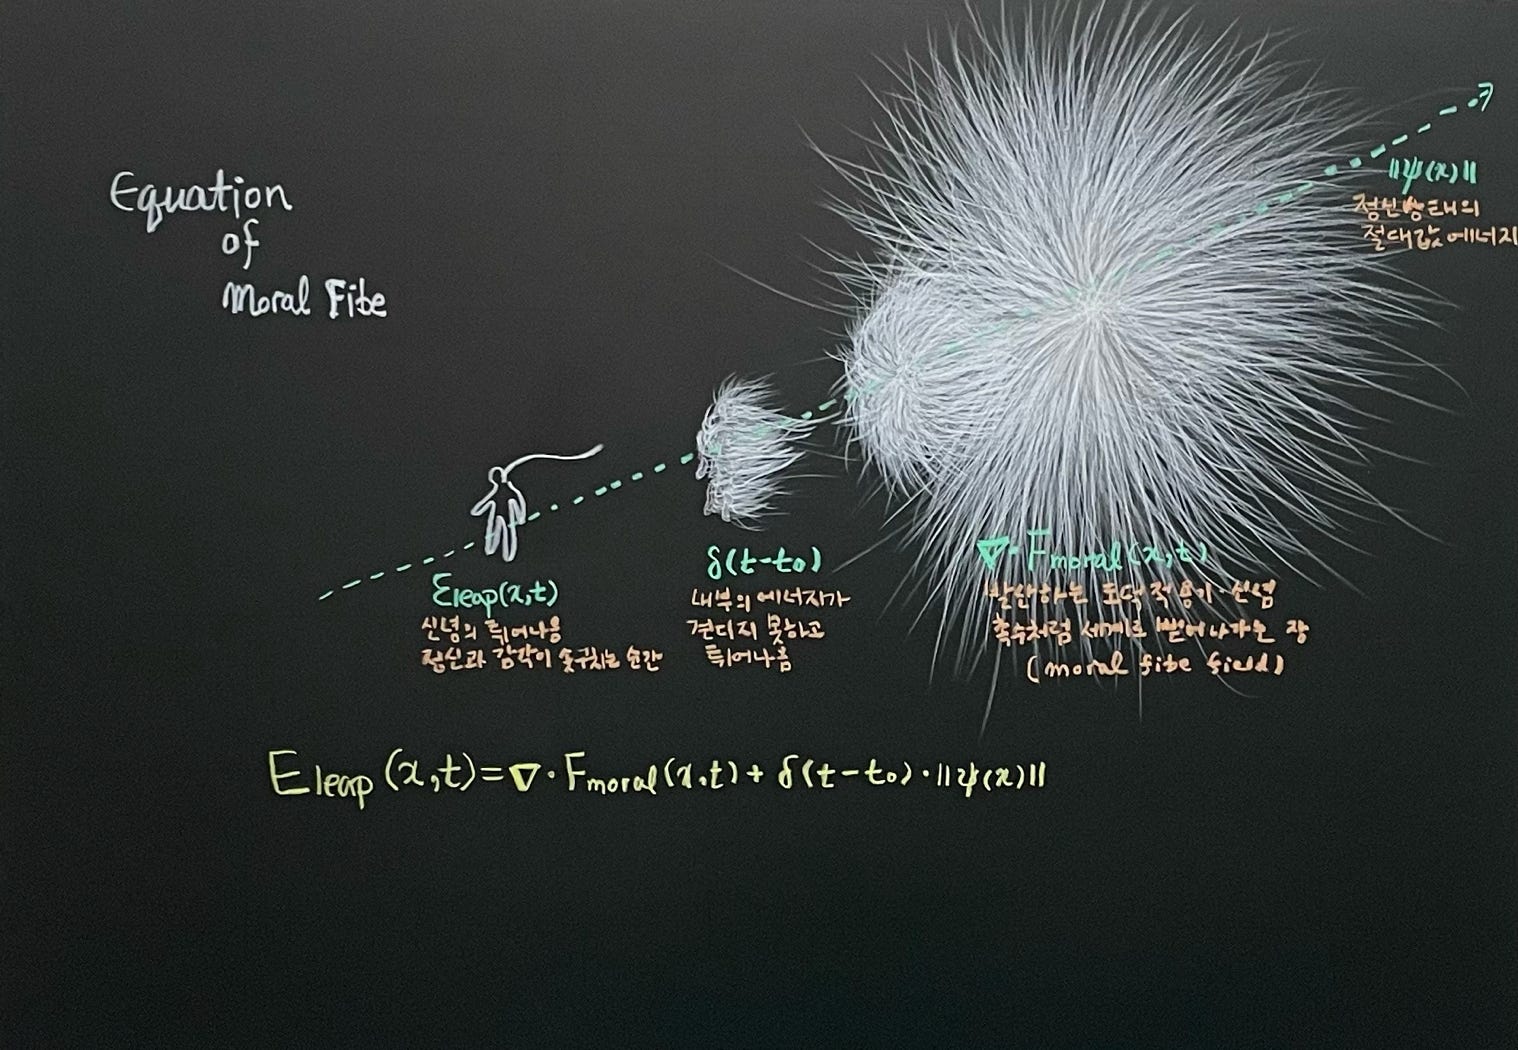 Equation
of
Moral Fibe
||ψ(x)||
정신상태의
절대값 에너지
Eleap(x,t)
신념의 튀어나옴
정신과 감각이 솟구치는 순간
δ(t-t₀)
내부의 에너지가
견디지 못하고
튀어나옴
∇·Fmoral(x,t)
발산하는 도덕적 용기·신념
촉수처럼 세계로 뻗어나가는 장
(moral fibe field)
Eleap(x,t)=∇·Fmoral(x,t)+δ(t-t₀)·||ψ(x)||